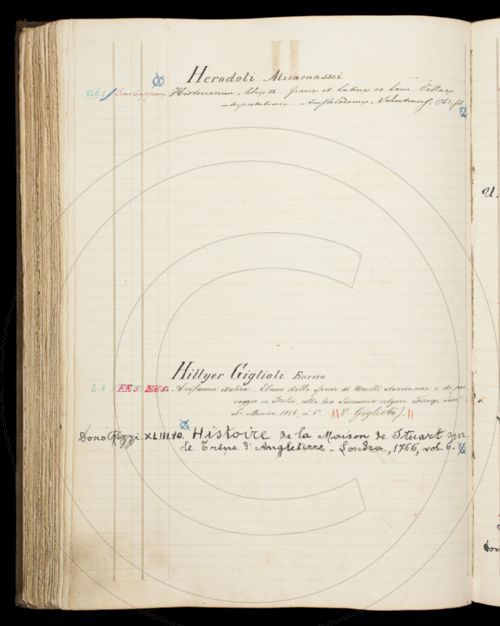 H
Herodoti Alicarnassei
Historiarum, libri IX. Graece et Latine ex Laur. Vallae
interpretatione. Amstelodami, 1763, fol.
Hillyer Giglioli Enrico
L. 6. EE 5. Avifauna italica. Elenco delle specie di Uccelli stazionarie o di pas
saggio in Italia, colla loro Sinonimia volgare. Firenze
Le Monnier 1886, in 8° (V. Giglioli).
Dono Rozzi XLIII.10. Histoire de la Maison de Stuart sur
le Trône d'Angleterre - Londra, 1766, vol. 6.